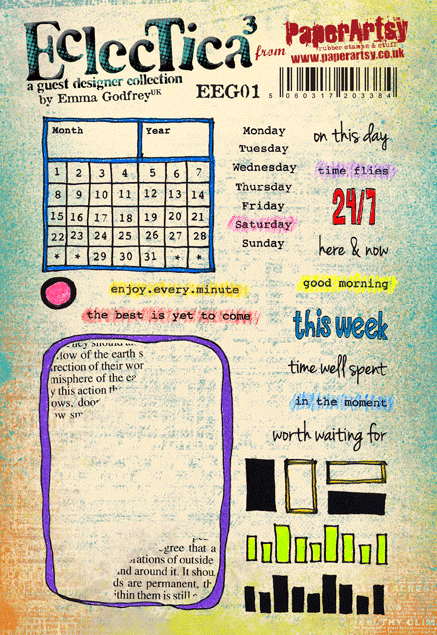 EclecTica³
from
PaperArtsy
rubber stamps & stuff
www.paperartsy.co.uk
a guest designer collection
by Emma Godfrey UK
EEG01
5 060317 203384
Month Year
1 2 3 4 5 6 7
8 9 10 11 12 13 14
15 16 17 18 19 20 21
22 23 24 25 26 27 28
* * 29 30 31 * *
Monday
Tuesday
Wednesday
Thursday
Friday
Saturday
Sunday
on this day
time flies
24/7
here & now
good morning
this week
time well spent
in the moment
worth waiting for
enjoy.every.minute
the best is yet to come
they should
low of the earth's
rection of their wor
misphere of the ea
y this action th
ows, door
ow sm
gree that a
rations of outside
and around it. It shou
ds are permanent, th
ithin them is still